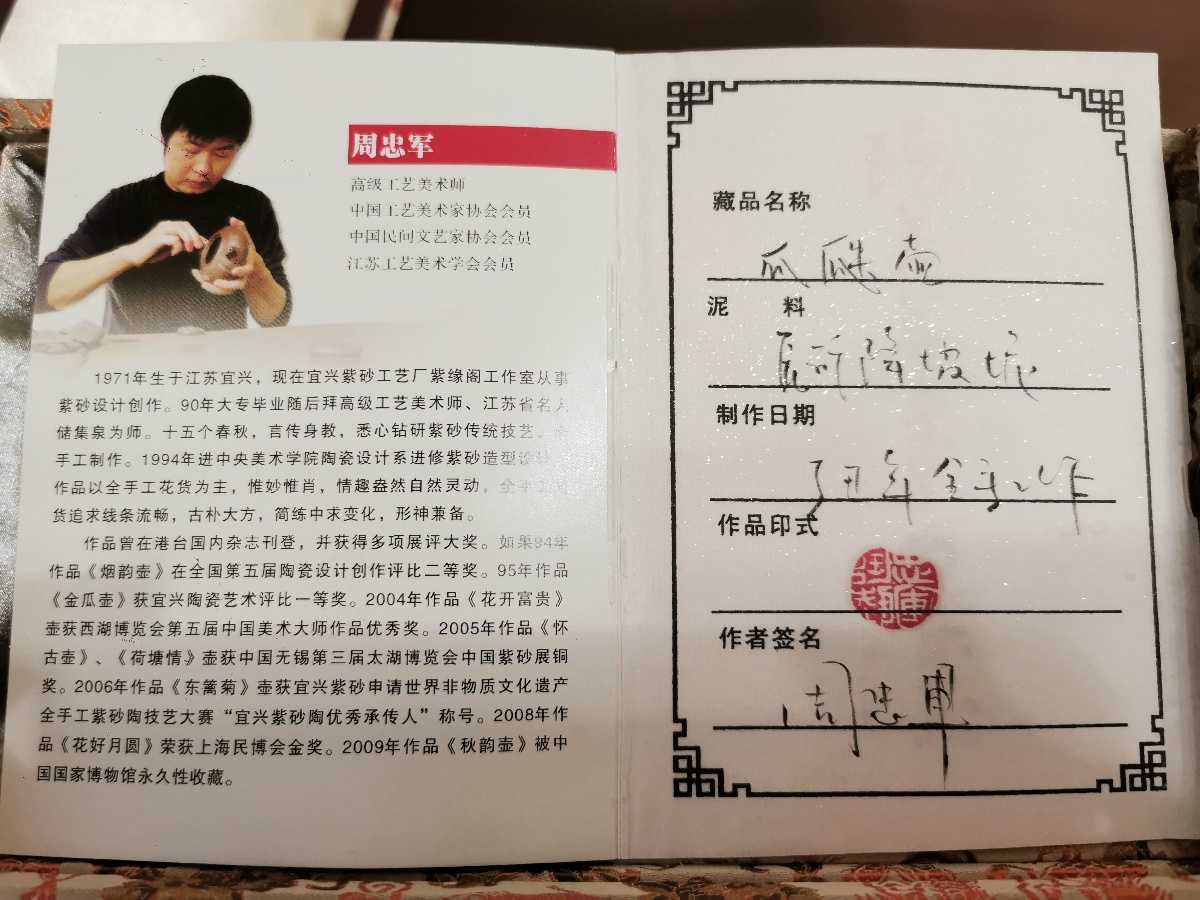 周忠军
高级工艺美术师
中国工艺美术家协会会员
中国民间文艺家协会会员
江苏工艺美术学会会员
1971年生于江苏宜兴，现在宜兴紫砂工艺厂紫缘阁工作室从事
紫砂设计创作。90年大专毕业随后拜高级工艺美术师、江苏省名人
储集泉为师。十五个春秋，言传身教，悉心钻研紫砂传统技艺，全
手工制作。1994年进中央美术学院陶瓷设计系进修紫砂造型设计
作品以全手工花货为主，惟妙惟肖，情趣盎然自然灵动，全手工
货追求线条流畅，古朴大方，简练中求变化，形神兼备。
作品曾在港台国内杂志刊登，并获得多项展评大奖。如果94年
作品《烟韵壶》在全国第五届陶瓷设计创作评比二等奖。95年作品
《金瓜壶》获宜兴陶瓷艺术评比一等奖。2004年作品《花开富贵》
壶获西湖博览会第五届中国美术大师作品优秀奖。2005年作品《怀
古壶》、《荷塘情》壶获中国无锡第三届太湖博览会中国紫砂展铜
奖。2006年作品《东篱菊》壶获宜兴紫砂申请世界非物质文化遗产
全手工紫砂陶技艺大赛“宜兴紫砂陶优秀承传人”称号。2008年作
品《花好月圆》荣获上海民博会金奖。2009年作品《秋韵壶》被中
国国家博物馆永久性收藏。
藏品名称
瓜瓞壶
泥 料
降坡泥
制作日期
年全手工作
作品印式
作者签名
周忠军